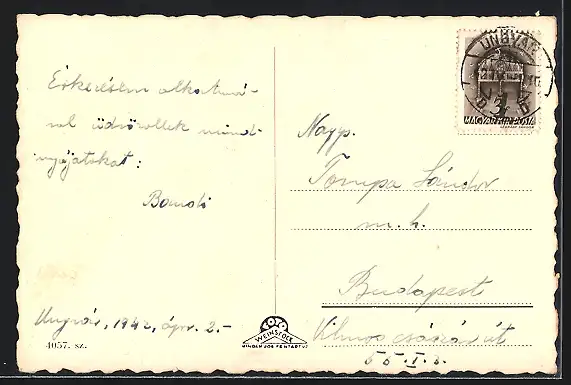 Érkezésem alkalmá-
val üdvözöllek mind-
nyájatokat:
Bandi
Ungvár, 1942, ápr. 2.-
4057. sz.
WEINSTOCK
MINDEN JOG FENTARTVA
UNGVÁR
3f
MAGYAR KIR. POSTA
Nagys.
Tompa Sándor
Budapest
Vilmos császár út
55. I. 8.